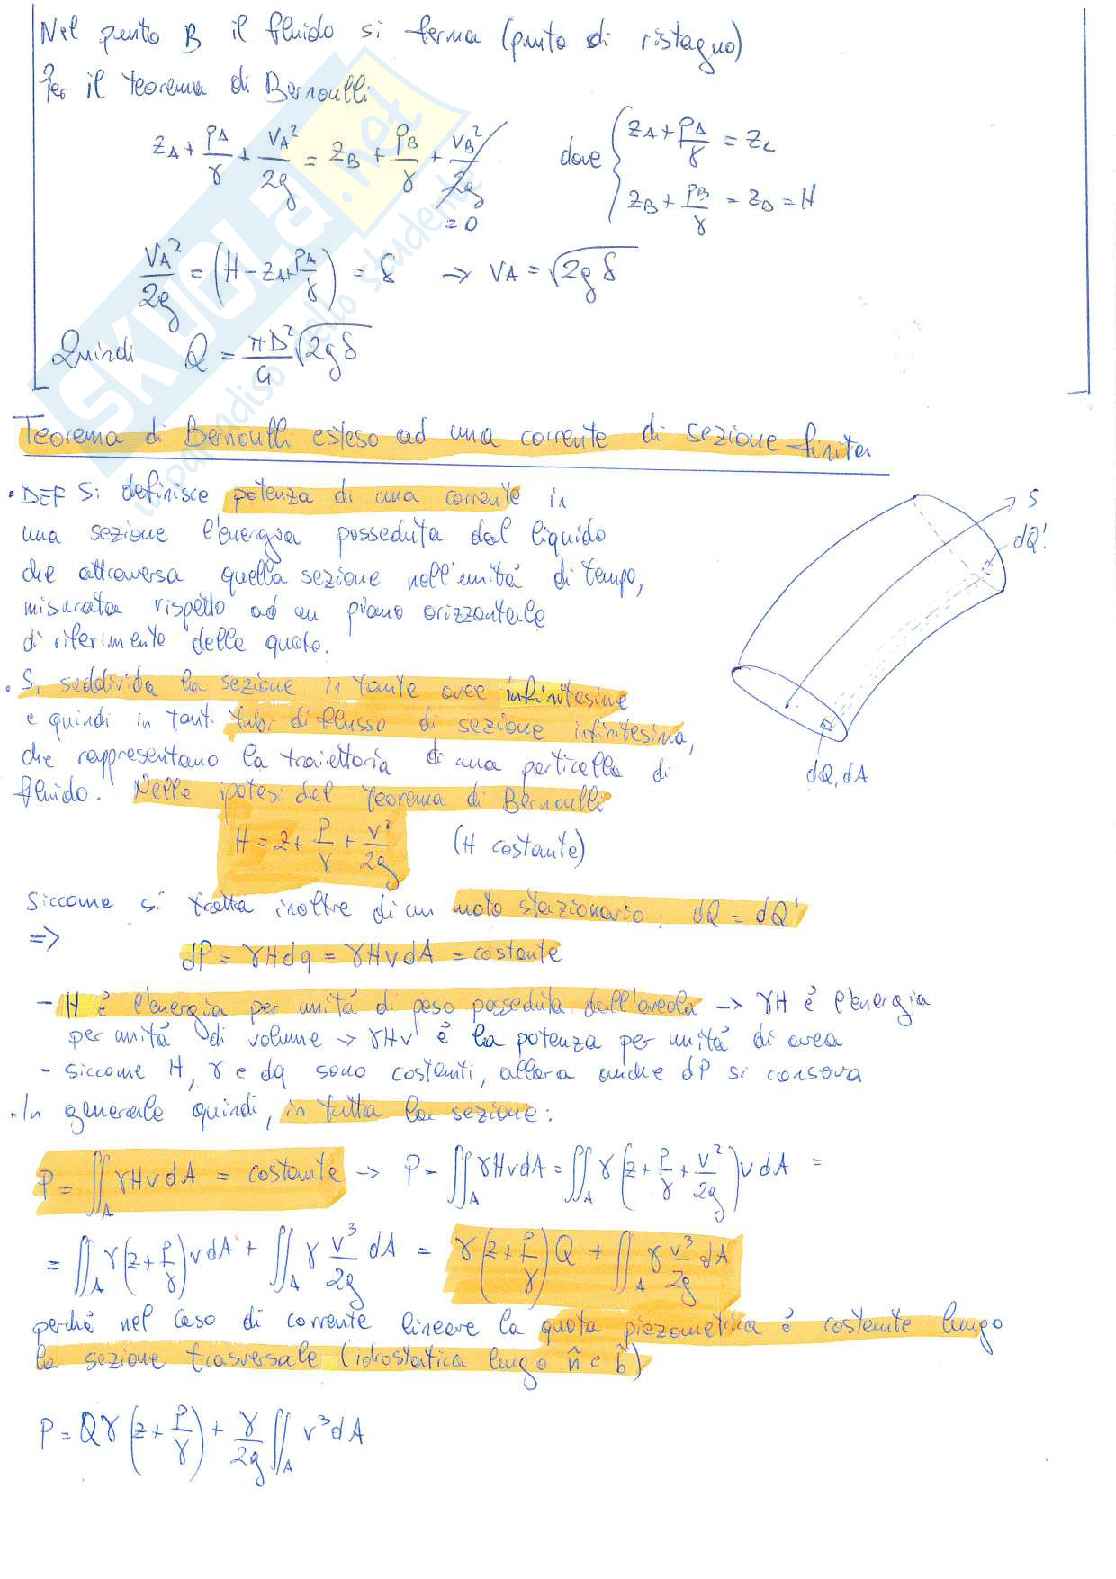 Nel punto B il fluido si ferma (punto di ristagno)
Per il teorema di Bernoulli
zA + pA/γ + vA²/2g = zB + pB/γ + vB²/2g dove { zA + pA/γ = zC
= 0 zB + pB/γ = zD = H
vA²/2g = (H - zA + pA/γ) = δ → vA = √2gδ
Quindi Q = πD²/4 √2gδ
Teorema di Bernoulli esteso ad una corrente di sezione finita
• DEF Si definisce potenza di una corrente in
una sezione l'energia posseduta dal liquido
che attraversa quella sezione nell'unità di tempo,
misurata rispetto ad un piano orizzontale
di riferimento delle quote.
S
dQ'
dQ, dA
• Si suddivida la sezione in tante aree infinitesime
e quindi in tanti tubi di flusso di sezione infinitesima,
che rappresentano la traiettoria di una particella di
fluido. Nelle ipotesi del teorema di Bernoulli
H = z + p/γ + v²/2g (H costante)
Siccome si tratta inoltre di un moto stazionario dQ = dQ'
=>
dP = γHdq = γHvdA = costante
- H è l'energia per unità di peso posseduta dall'areola → γH è l'energia
per unità di volume → γHv è la potenza per unità di area
- siccome H, γ e dq sono costanti, allora anche dP si conserva
• In generale quindi, in tutta la sezione:
P = ∬A γHvdA = costante → P = ∬A γHvdA = ∬A γ(z + p/γ + v²/2g)vdA =
= ∬A γ(z + p/γ)vdA + ∬A γ v³/2g dA = γ(z + p/γ)Q + ∬A γ v³/2g dA
perché nel caso di corrente lineare la quota piezometrica è costante lungo
la sezione trasversale (idrostatica lungo n̂ e b̂)
P = Qγ(z + p/γ) + γ/2g ∬A v³dA
SKUOLA.net
il paradiso dello studente